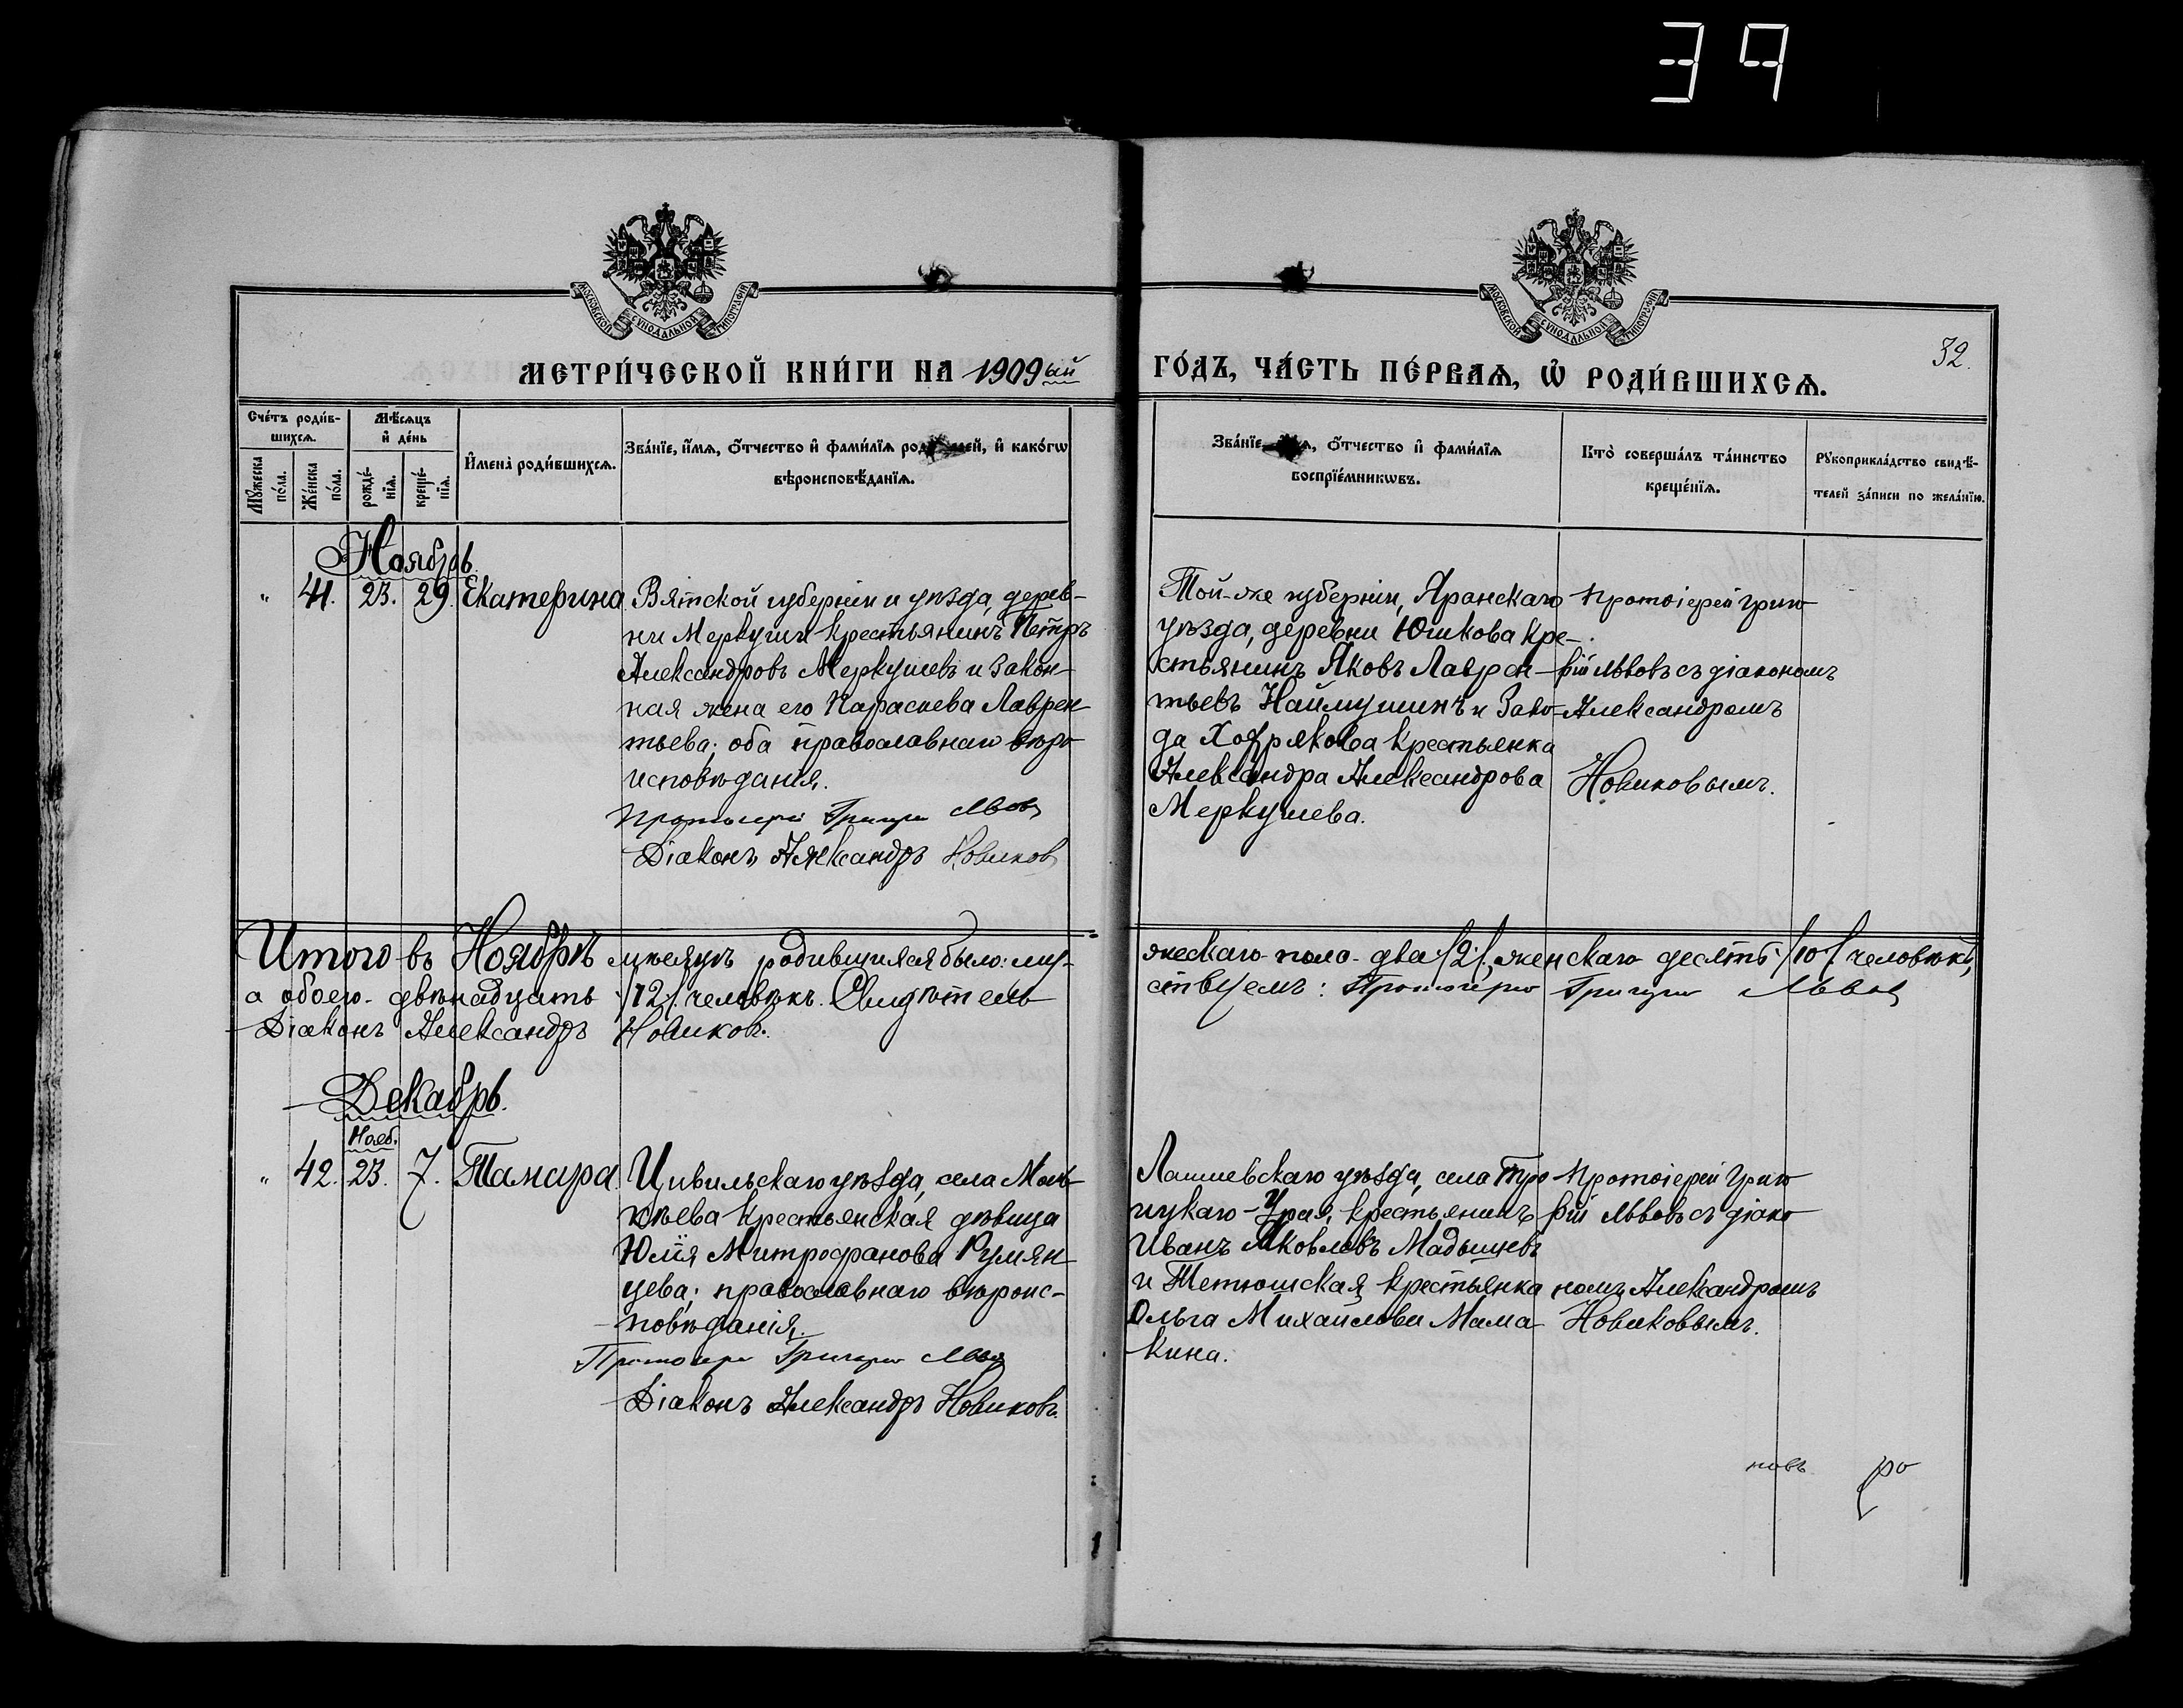 39
МОСКОВСКОЙ СУНОДАЛЬНОЙ ТИПОГРАФІИ
МОСКОВСКОЙ СУНОДАЛЬНОЙ ТИПОГРАФІИ
МЕТРИ́ЧЕСКОЙ КНИ́ГИ НА 1909ый
ГО́ДЪ, ЧА́СТЬ ПЕ́РВАѦ, Ѡ҆ РОДИ́ВШИХСѦ.
32.
Сче́тъ роди́в-
шихсѧ.
Мѣ́сѧцъ
и҆ де́нь
Мꙋ́жеска
по́ла.
Же́нска
по́ла.
рожде́-
нїѧ.
креще́-
нїѧ.
И҆мена̀ роди́вшихсѧ.
Зва́нїе, и҆́мѧ, ѻ҆́тчество и҆ фами́лїѧ родителей, и҆ како́гѡ
вѣроисповѣ́данїѧ.
Зва́нїе, и҆́мѧ, ѻ҆́тчество и҆ фами́лїѧ
воспрїе́мникѡвъ.
Кто̀ соверша́лъ та́инство
креще́нїѧ.
Рꙋкоприкла́дство свидѣ́-
телей за́писи по жела́нїю.
Ноябрь.
" 41. 23. 29. Екатерина
Вятской губерніи и уѣзда, дерев-
ни Меркуши крестьянинъ Петръ
Александровъ Меркушевъ и закон-
ная жена его Параскева Лаврен
тьева; оба православнаго вѣро
исповѣданія.
Протоіерей Григорій Львовъ
Діаконъ Александръ Новиковъ
Той-же губерніи, Яранскаго
уѣзда, деревни Юшкова кре-
стьянинъ Яковъ Лаврен-
тьевъ Наймушинъ и Заво-
да Хохрякова крестьянка
Александра Александрова
Меркушева.
Протоіерей Григо
рій Львовъ съ діакономъ
Александромъ
Новиковымъ.
Итого въ Ноябрѣ мѣсяцѣ родившихся было: му-
жескаго пола - два /2/, женскаго десять /10/ человѣкъ,
а обоего - двѣнадцать /12/ человѣкъ. Свидѣтель
ствуемъ: Протоіерей Григорій Львовъ
Діаконъ Александръ Новиковъ.
Декабрь.
Нояб.
" 42. 23. 7. Тамара
Цивильскаго уѣзда, села
крестьянская дѣвица
Юлія Митрофанова Румян
цева; православнаго вѣроис-
повѣданія.
Протоіерей Григорій Львовъ
Діаконъ Александръ Новиковъ.
Лаишевскаго уѣзда, села Тро
ицкаго-Урая, крестьянинъ
Иванъ Яковлевъ Мадышевъ
и Тетюшская крестьянка
Ольга Михайлова Мама-
кина.
Протоіерей Григо
рій Львовъ съ діако
номъ Александромъ
Новиковымъ.
новъ ро